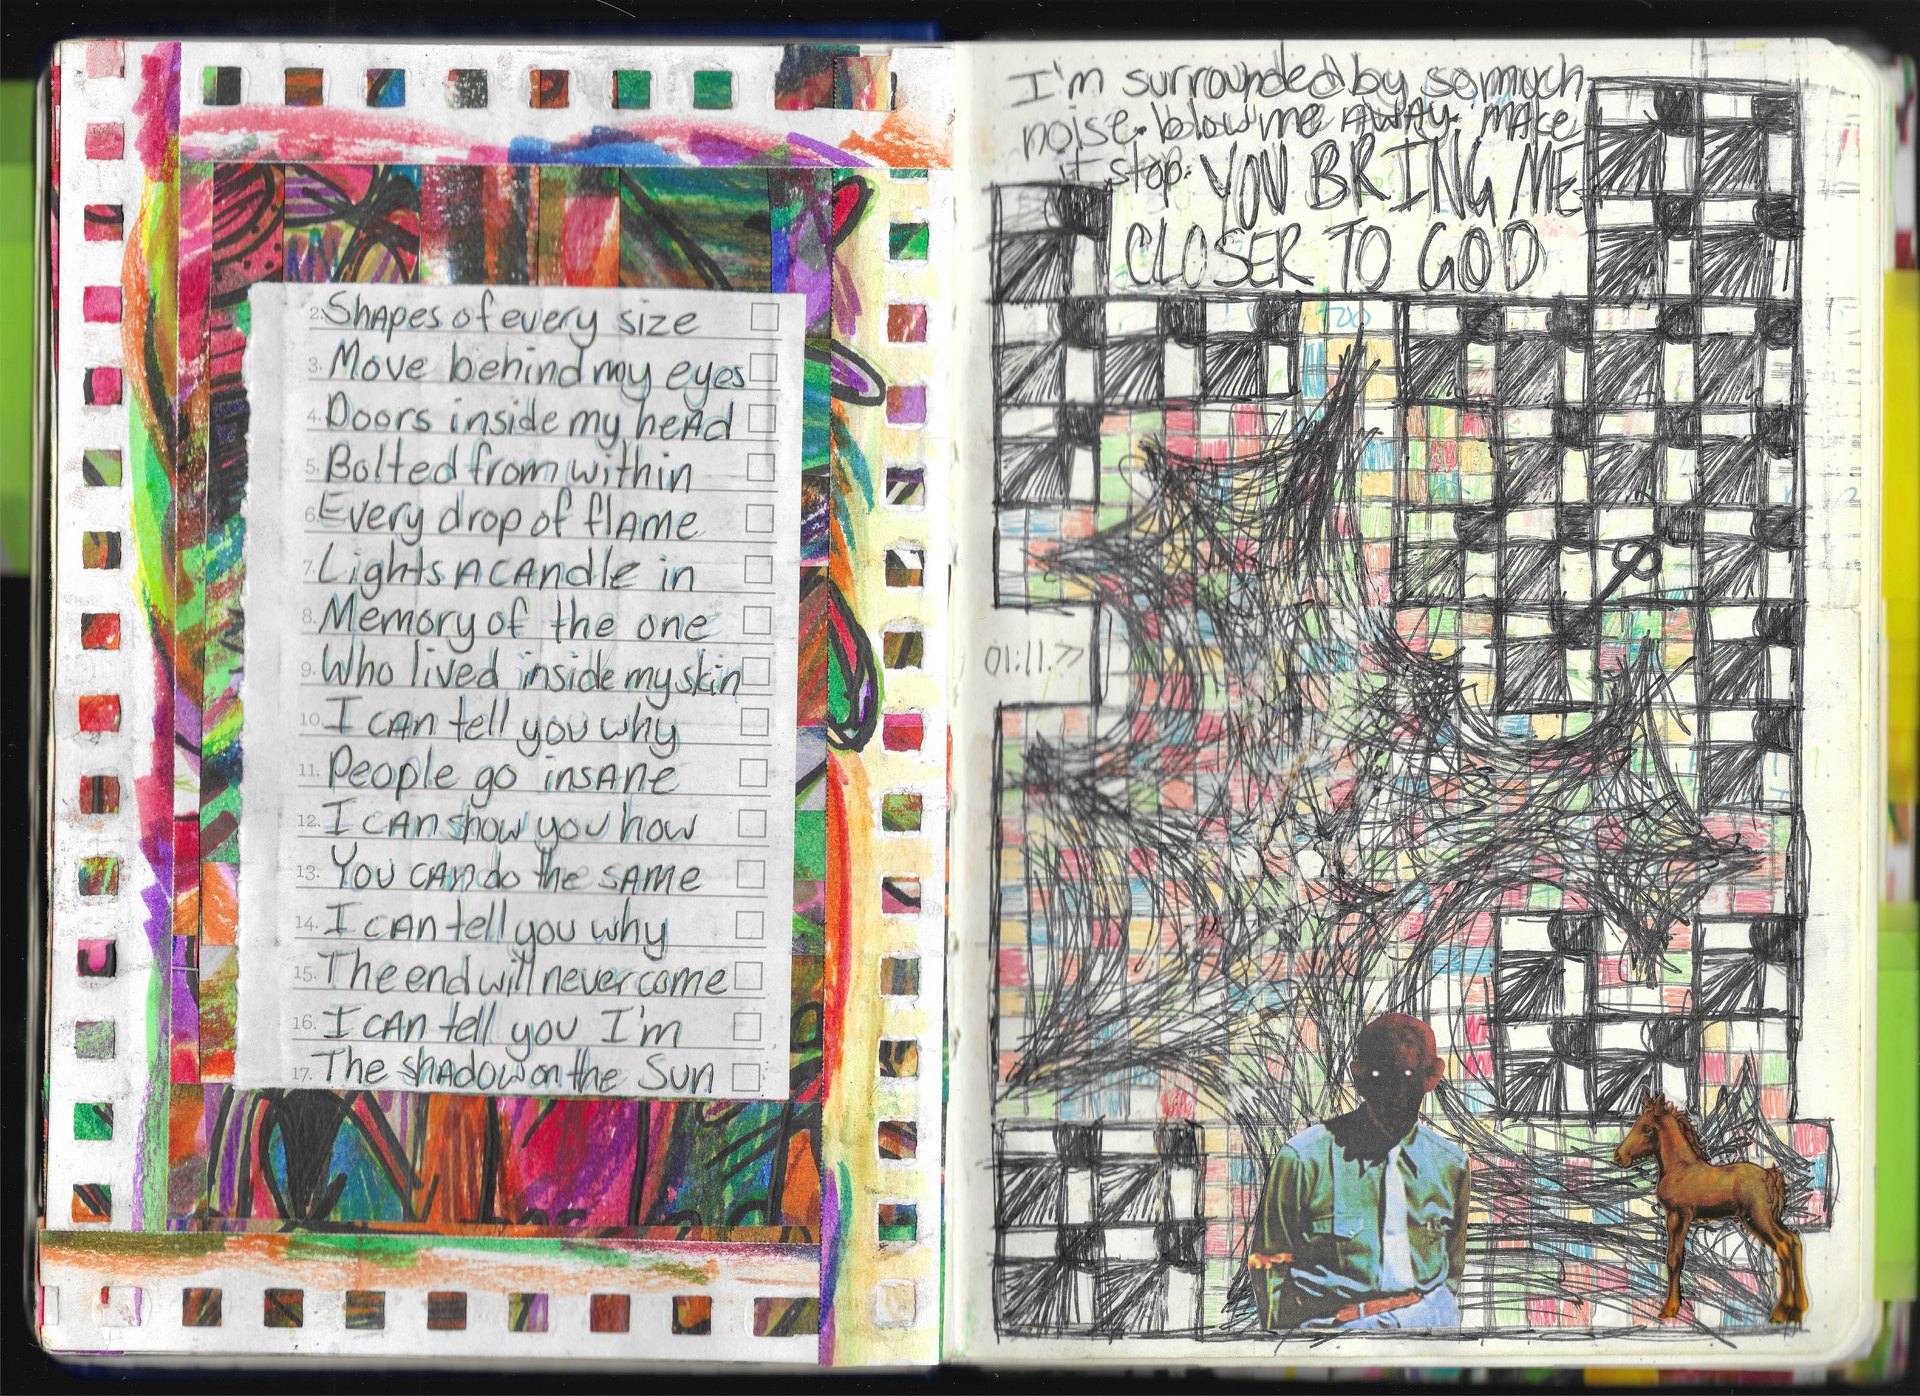 2. Shapes of every size
3. Move behind my eyes
4. Doors inside my head
5. Bolted from within
6. Every drop of flame
7. Lights a candle in
8. Memory of the one
9. Who lived inside my skin
10. I can tell you why
11. People go insane
12. I can show you how
13. You can do the same
14. I can tell you why
15. The end will never come
16. I can tell you I'm
17. The shadow on the Sun
I'm surrounded by so much
noise. blow me away. make
it stop. YOU BRING ME
CLOSER TO GOD
01.11.22